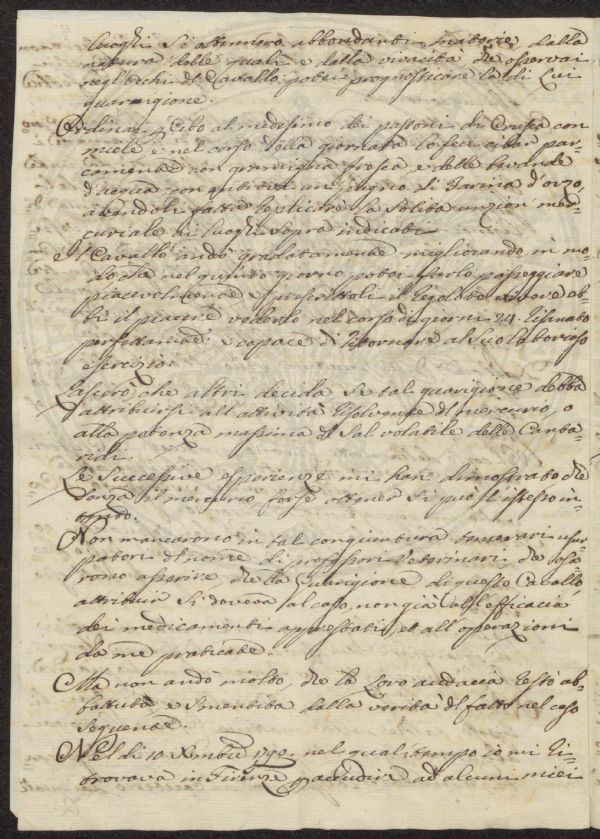 luoghi si ottennero abbondanti materie dalla
natura delle quali e dalla vivacità che osservai
negl'occhi del Cavallo potei prognosticare la di Lui
guarigione.
Ordinai p Cibo al medesimo dei pastoni di Crusca con
miele e nel corso della giornata lo feci cibar par-
camente con gramigna fresca e delle bevande
d'acqua con entrovi un pugno di Farina d'orzo,
avendoli fatta replicare la solita unzion mer-
curiale ni luoghi sopra indicati
Il Cavallo andò gradatamente migliorando in mo-
do che nel quinto giorno potei farlo passeggiare
piacevolmente e prescrittoli il regolato vivere eb-
bi il piacere vederlo nel corso di giorni 24. risanato
perfettamente e capace di ritornare al suo laborioso
esercizio.
Lascerò che altri decida se tal guarigione debba
attribuirsi all'attività risolvente del mercurio, o
alla potenza massima del sal volatile delle Canta-
ridi.
Le successive esperienze mi han dimostrato che
senza il mercurio forse ottener si può l'istesso in-
tento.
Non mancarono in tal congiuntura temerari usur-
patori del nome di professori Veterinari che osa-
rono asserire che la Guarigione di questo Cavallo
attribuir si doveva al caso, non già all'efficacia
dei medicamenti apprestati, et all'operazioni
da me praticate.
Ma non andò molto che la loro audacia restò ab-
battuta e smentita dalla verità del fatto nel caso
seguente.
Nel dì 10 Xmbre 1790. nel qual tempo io mi ri-
trovava in Firenze p accudire ad alcuni miei